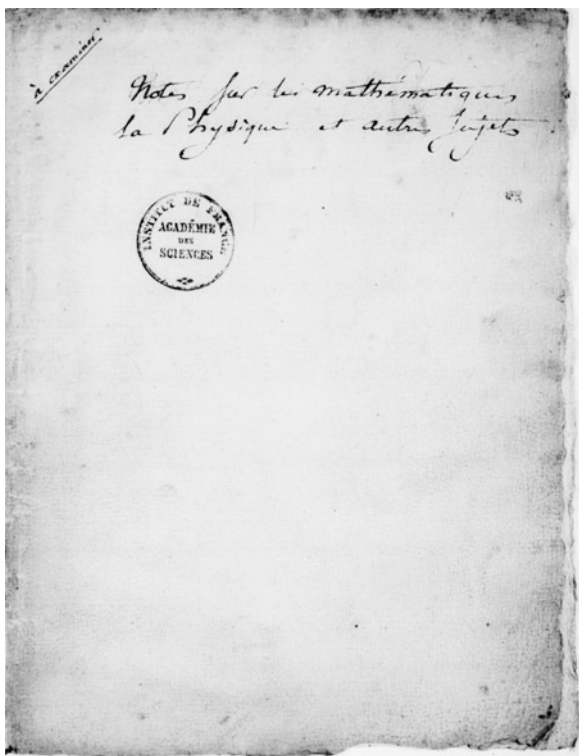 à examiner
Notes sur les mathématiques
la Physique et autres sujets
INSTITUT DE FRANCE
ACADÉMIE
DES
SCIENCES